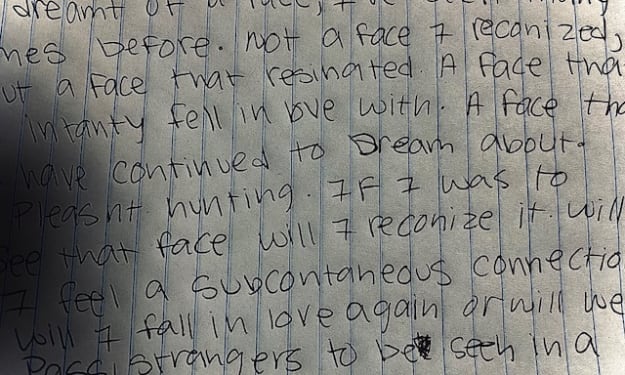 dreamt of a face, I've
nes before. not a face I reconized,
ut a face that resinated. A face tha
intanty fell in love with. A face tha
have continued to Dream about.
Pleasnt hunting. IF I was to
see that face will I reconize it. will
I feel a subcontaneous connectio
will I fall in love again or will we
Pass strangers to be seen in a